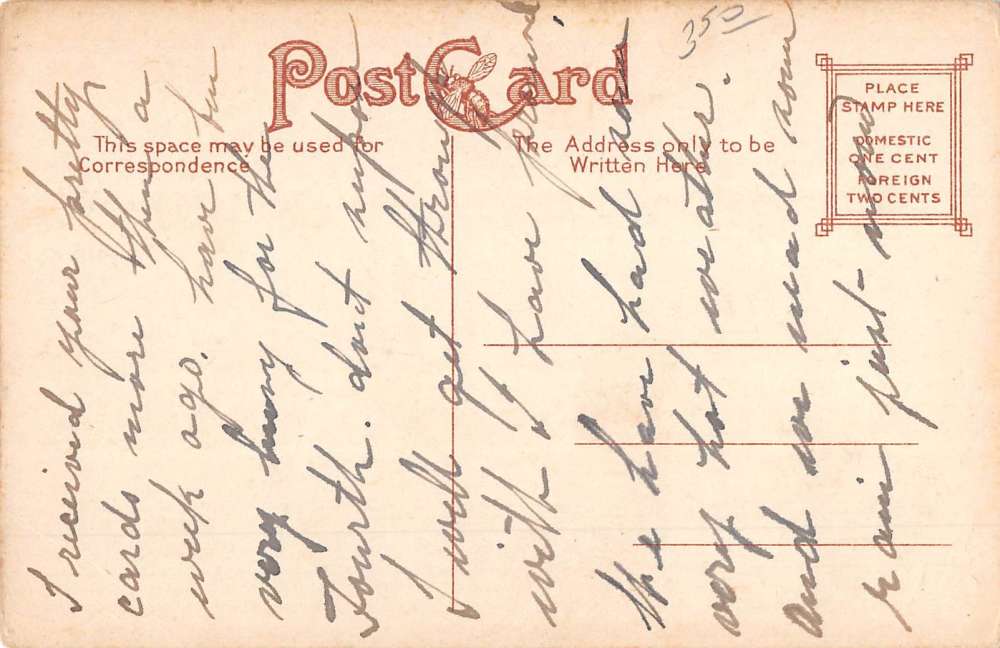 Post Card
This space may be used for
Correspondence
The Address only to be
Written Here
PLACE
STAMP HERE
DOMESTIC
ONE CENT
FOREIGN
TWO CENTS
350
I received your pretty
cards more then a
week ago. have been
very busy for the
Fourth. dont suppose
I will get through
with I have
We have had some
very hot weather.
and we need some
rain just now